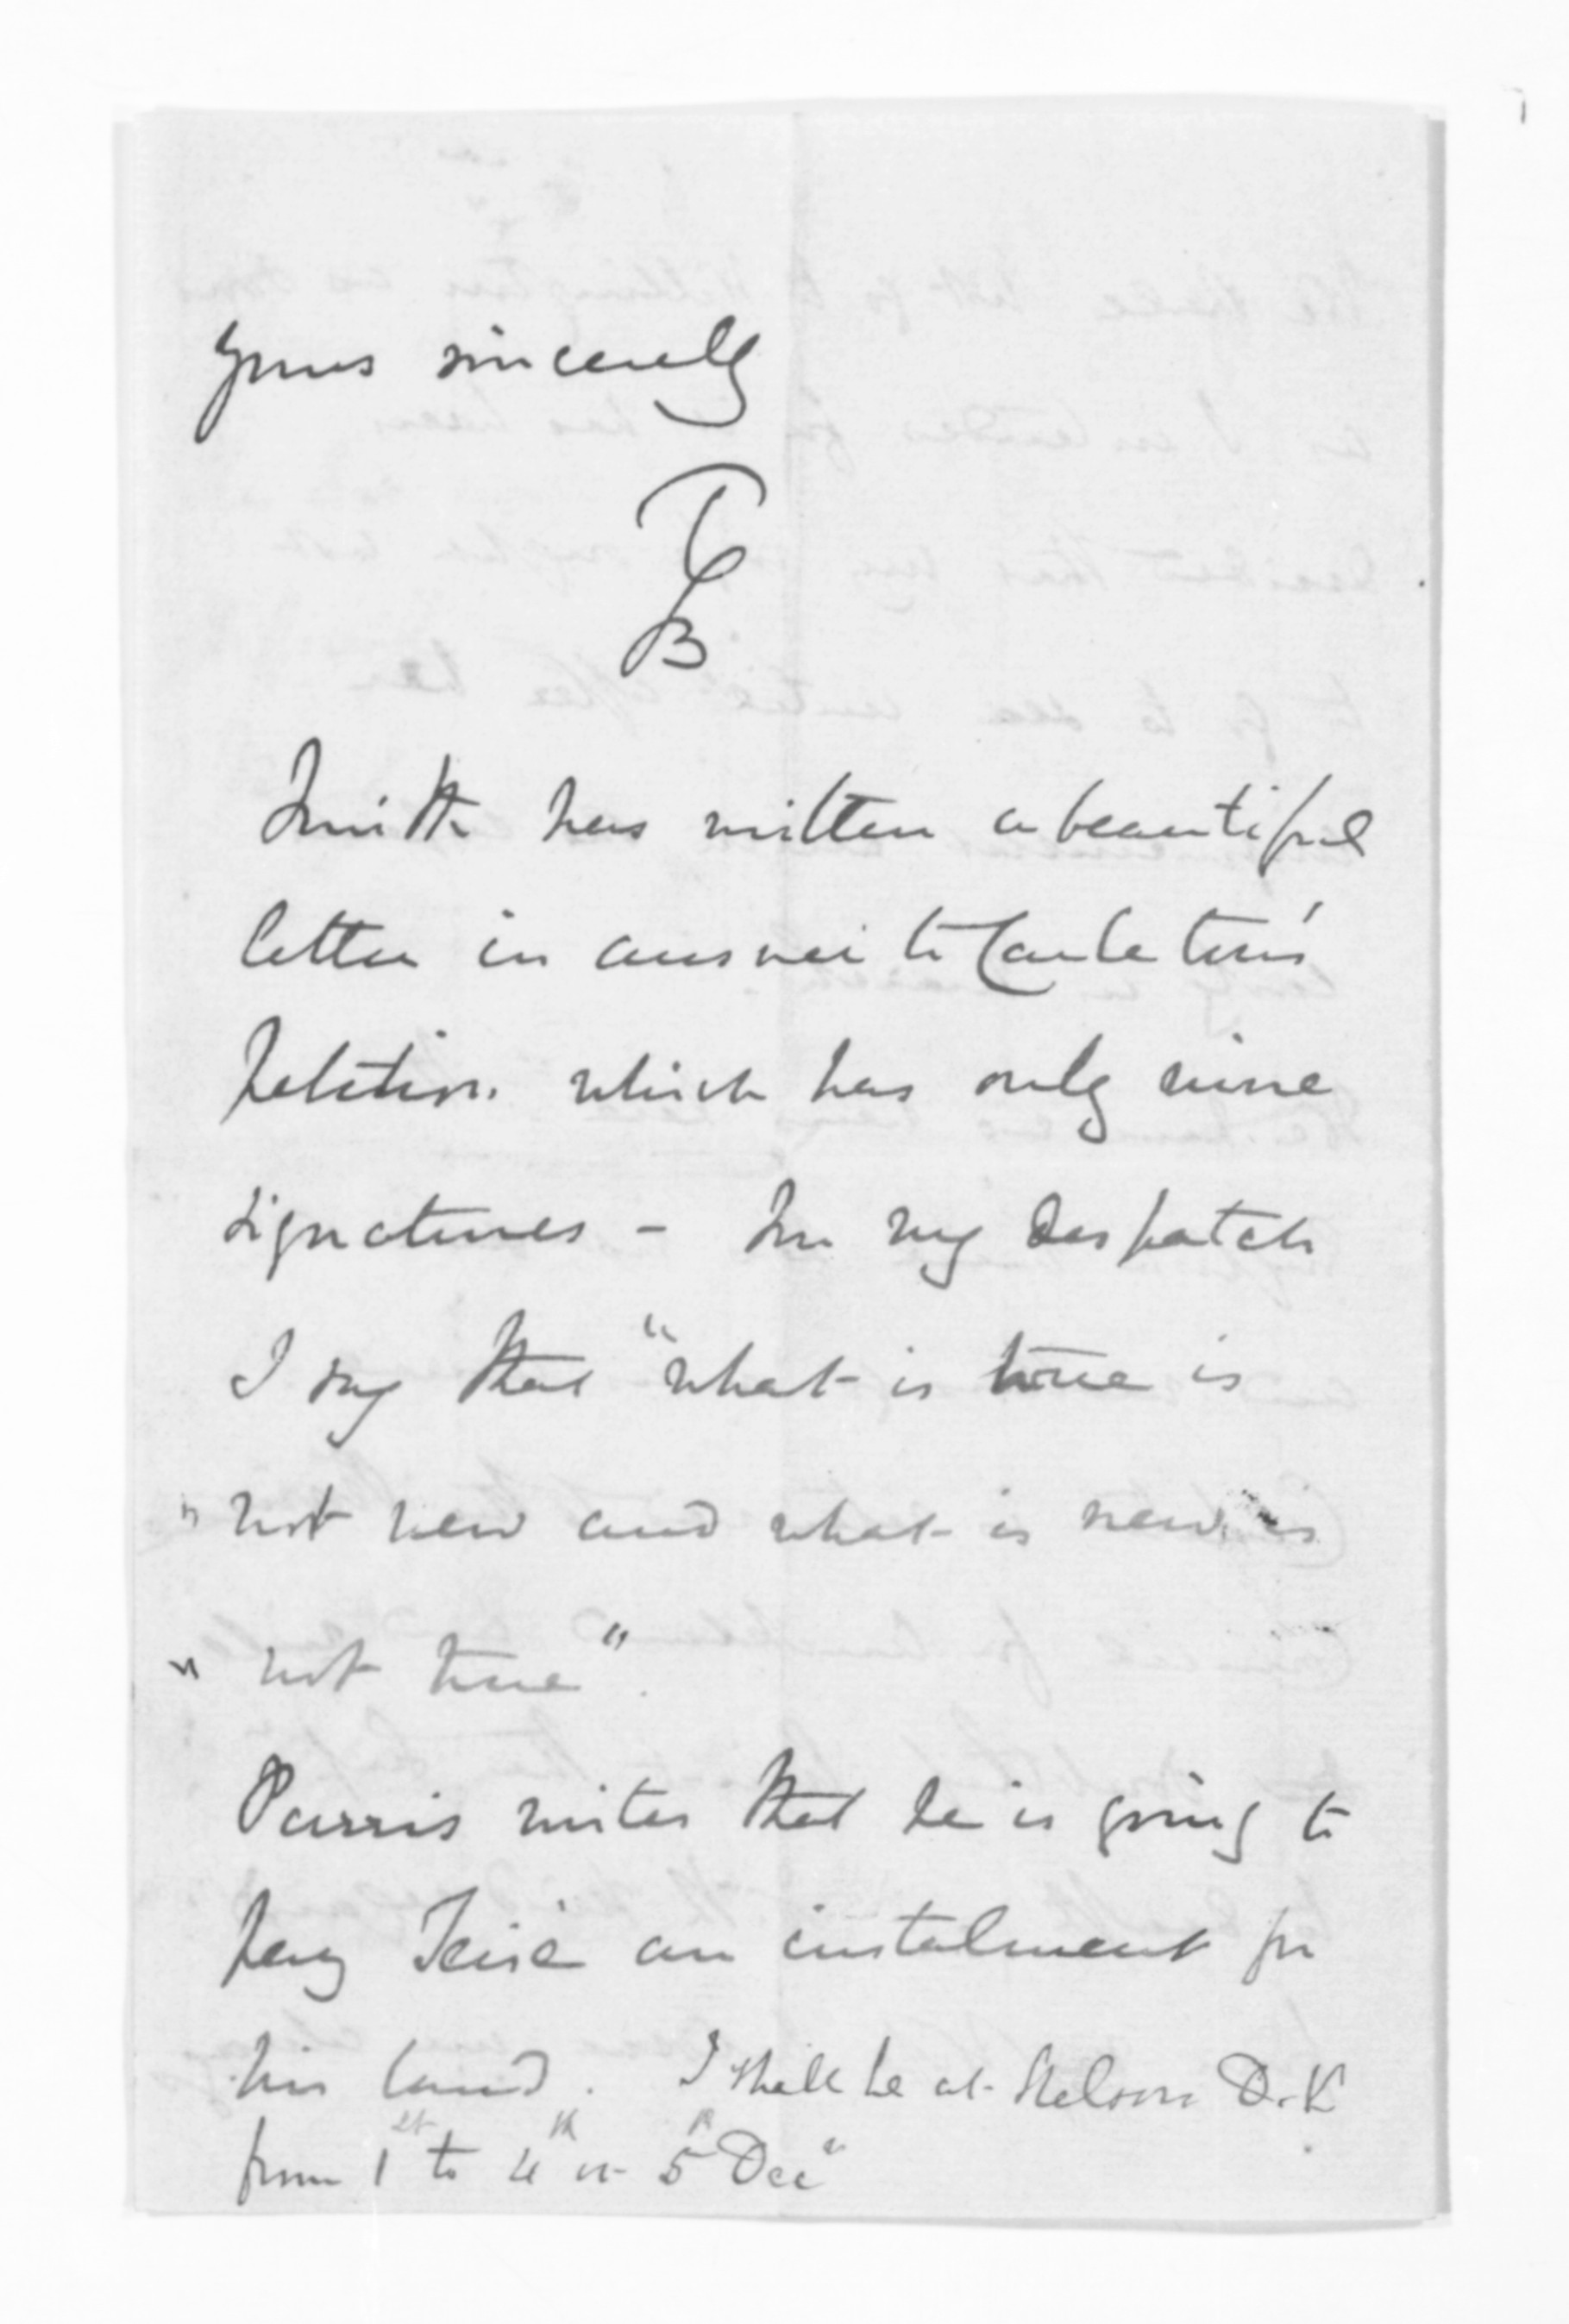 Yours sincerely
TGB
Smith has written a beautiful
letter in answer to Carleton's
Petition. which has only nine
signatures - In my Despatch
I say that "what is true is
" not new and what is new is
" not true".
Parris writes that he is going to
pay Teira an instalment for
his land. I shall be at Nelson D.V.
from 1st to 4th or 5th Decr